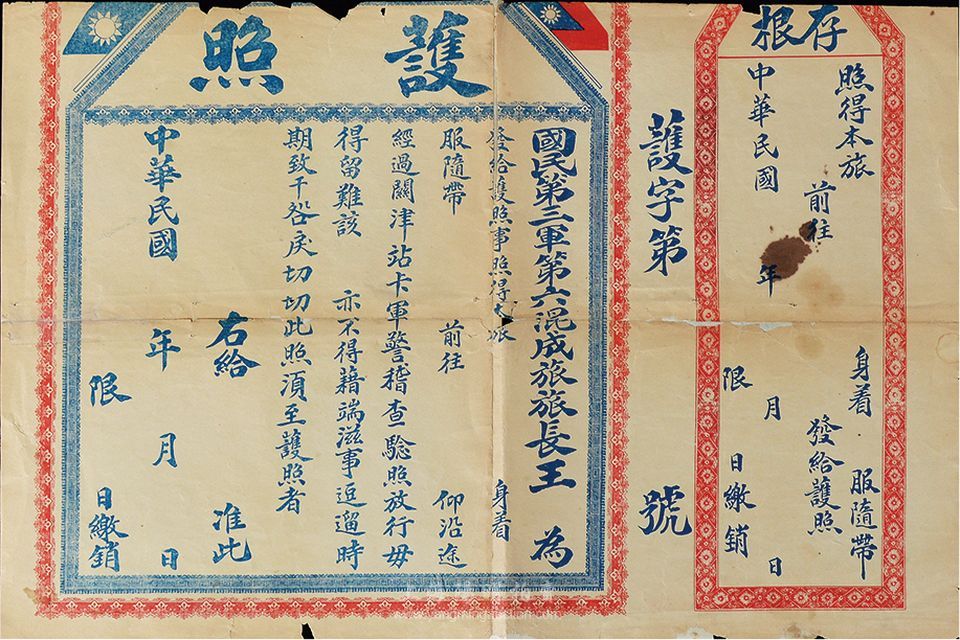 存根
照得本旅 身着 服隨帶
前往 發給護照
中華民國 年 月 日
限 日繳銷
護字第 號
護照
國民第三軍第六混成旅旅長王 為
發給護照事照得本旅 身着
服隨帶 前往 仰沿途
經過關津站卡軍警稽查驗照放行毋
得留難該 亦不得藉端滋事逗遛時
期致干咎戾切切此照須至護照者
右給 准此
中華民國 年 月 日
限 日繳銷